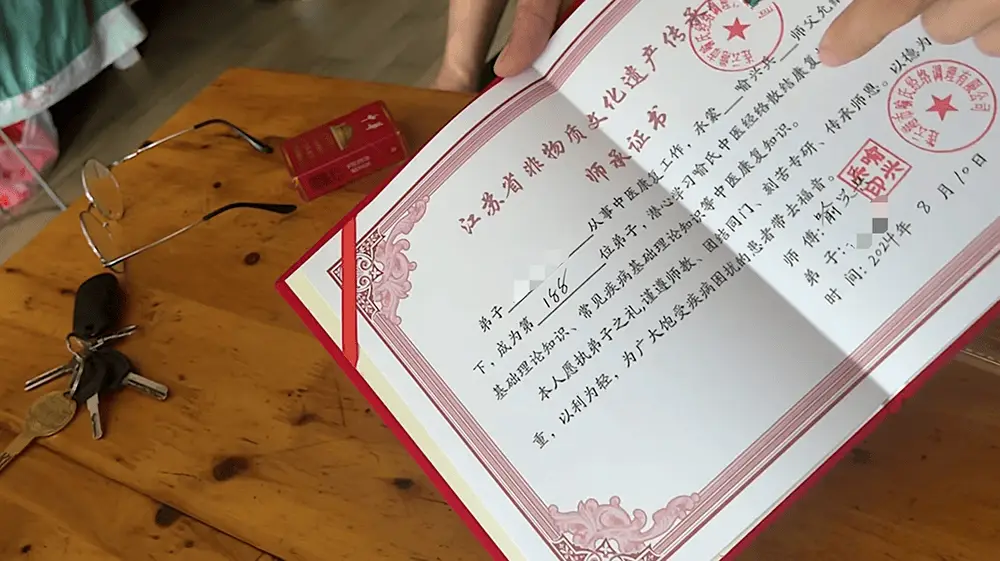 江苏省非物质文化遗产传承
师承证书
弟子 从事中医康复工作,承蒙 喻兴兵 师父允
下,成为第 188 位弟子,潜心学习喻氏中医经络散结康复
基础理论知识、常见疾病基础理论知识等中医康复知识。
本人愿执弟子之礼,谨遵师教、团结同门、刻苦专研、传承师恩。以德为
重,以利为轻,为广大饱受疾病困扰的患者带去福音。
师傅:喻兴
弟子:
时间:2024年 8月10日
市喻氏经络调理有限公司